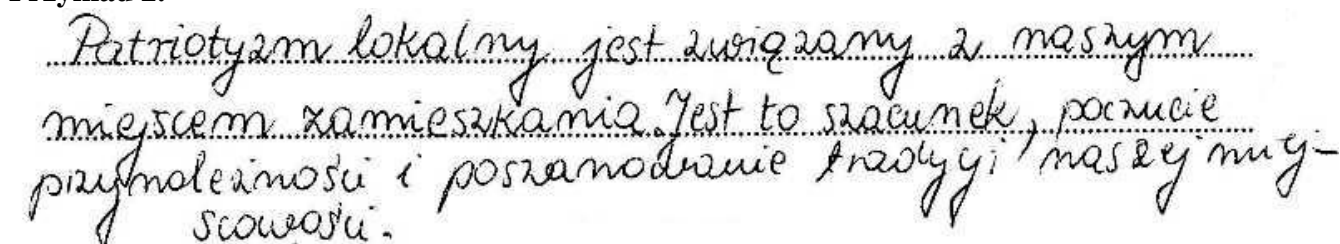 Patriotyzm lokalny jest związany z naszym
miejscem zamieszkania. Jest to szacunek, poczucie
przynależności i poszanowanie tradycji naszej miej-
scowości.